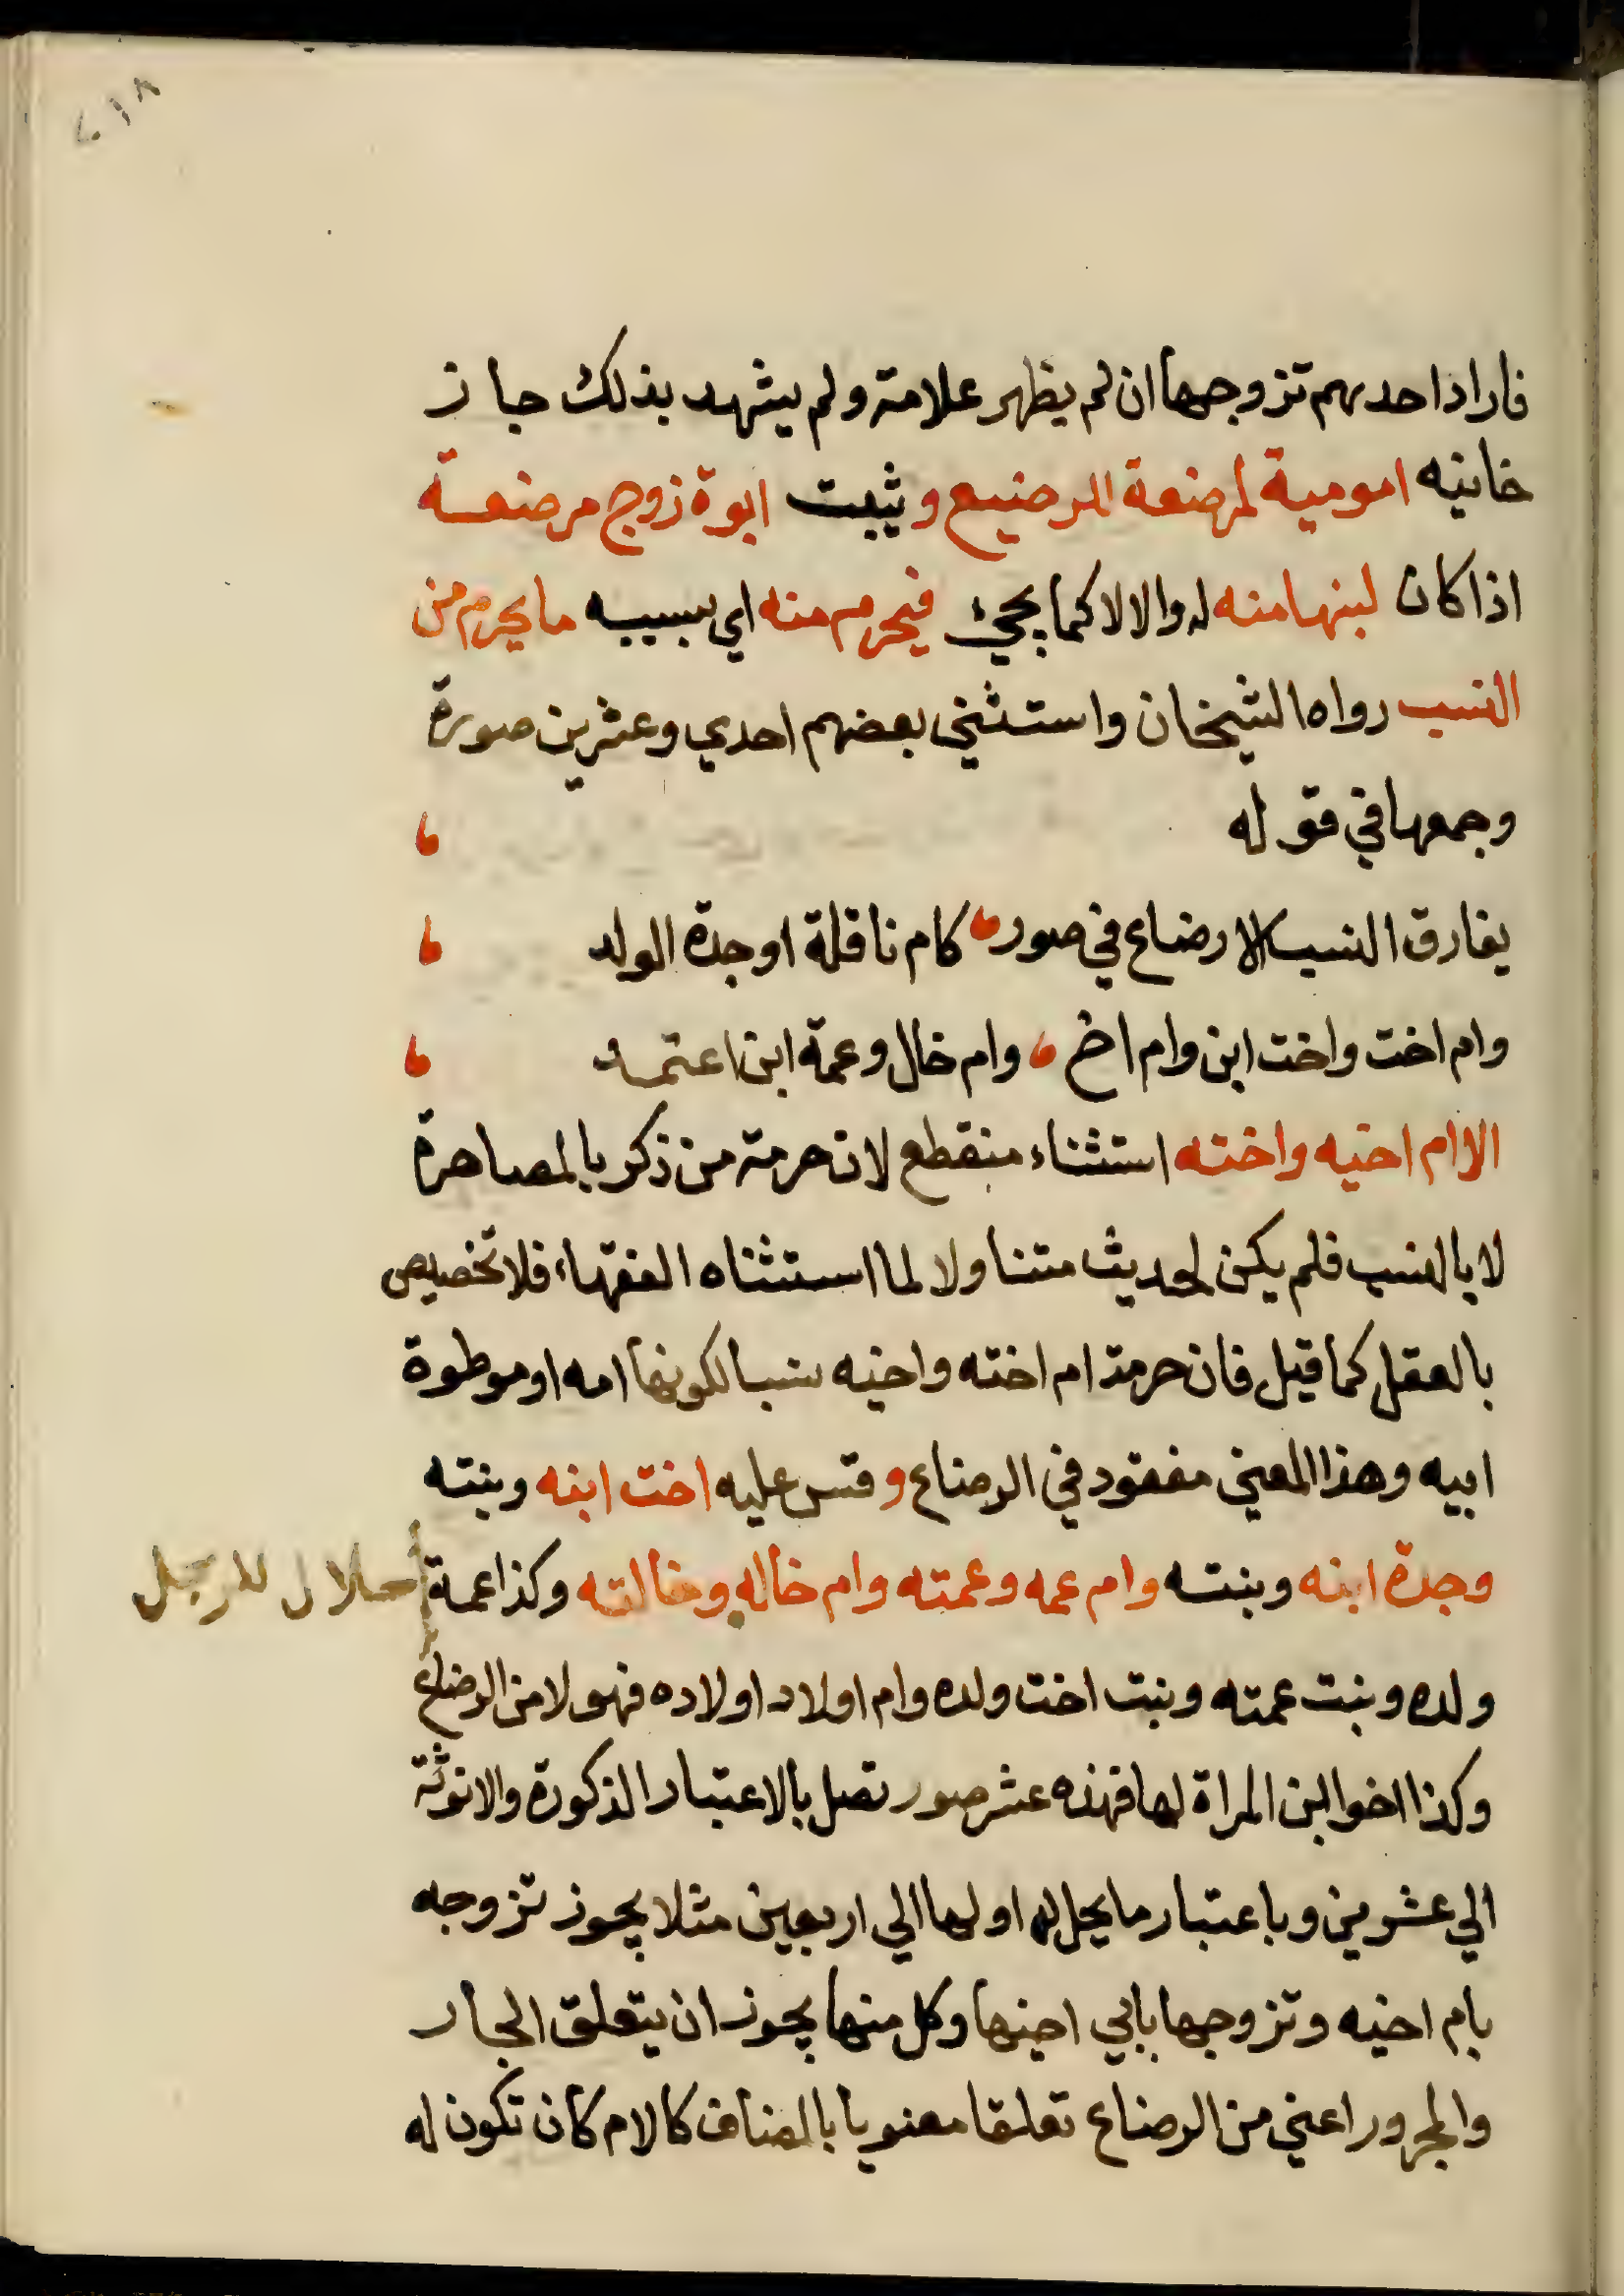 ٢١٨
فاراد احدهم تزوجها ان لم يظهر علامة ولم يشهد بذلك جاز
خانيه امومية المرضعة للرضيع و يثبت ابوة زوج مرضعة
اذا كان لبنها منه له والا لا كما يجئ فيحرم منه اي بسببه ما يحرم من
النسب رواه الشيخان واستثنى بعضهم احدي وعشرين صورة
وجمعها في قوله
يفارق النسب الارضاع في صور كام نافلة او جدة الولد
وام اخت واخت ابن وام اخ وام خال وعمة ابن اعتمد
الا ام اخيه واخته استثناء منقطع لان حرمة من ذكر بالمصاهرة
لا بالنسب فلم يكن لحديث متناولا لما استثناه الفقهاء فلا تخصيص
بالعقل كما قيل فان حرمة ام اخته واخيه نسبا لكونها امه او موطوة
ابيه وهذا المعنى مفقود في الرضاع و قس عليه اخت ابنه وبنته
وجدة ابنه وبنته وام عمه وعمته وام خاله وخالته وكذا عمة
حلال للرجل
ولده وبنت عمته وبنت اخت ولده وام اولاد اولاده فهولا من الرضاع
وكذا اخوا ابن المراة لها فهذه عشر صور تصل بالاعتبار الذكورة والانوثة
الي عشرين وباعتبار ما يحل له او لها الي اربعين مثلا يجوز تزوجه
بام اخيه وتزوجها بابي اخيها وكل منها يجوز ان يتعلق الجار
والمجرور اعني من الرضاع تعلقا معنويا بالمضاف كالام كان تكون له